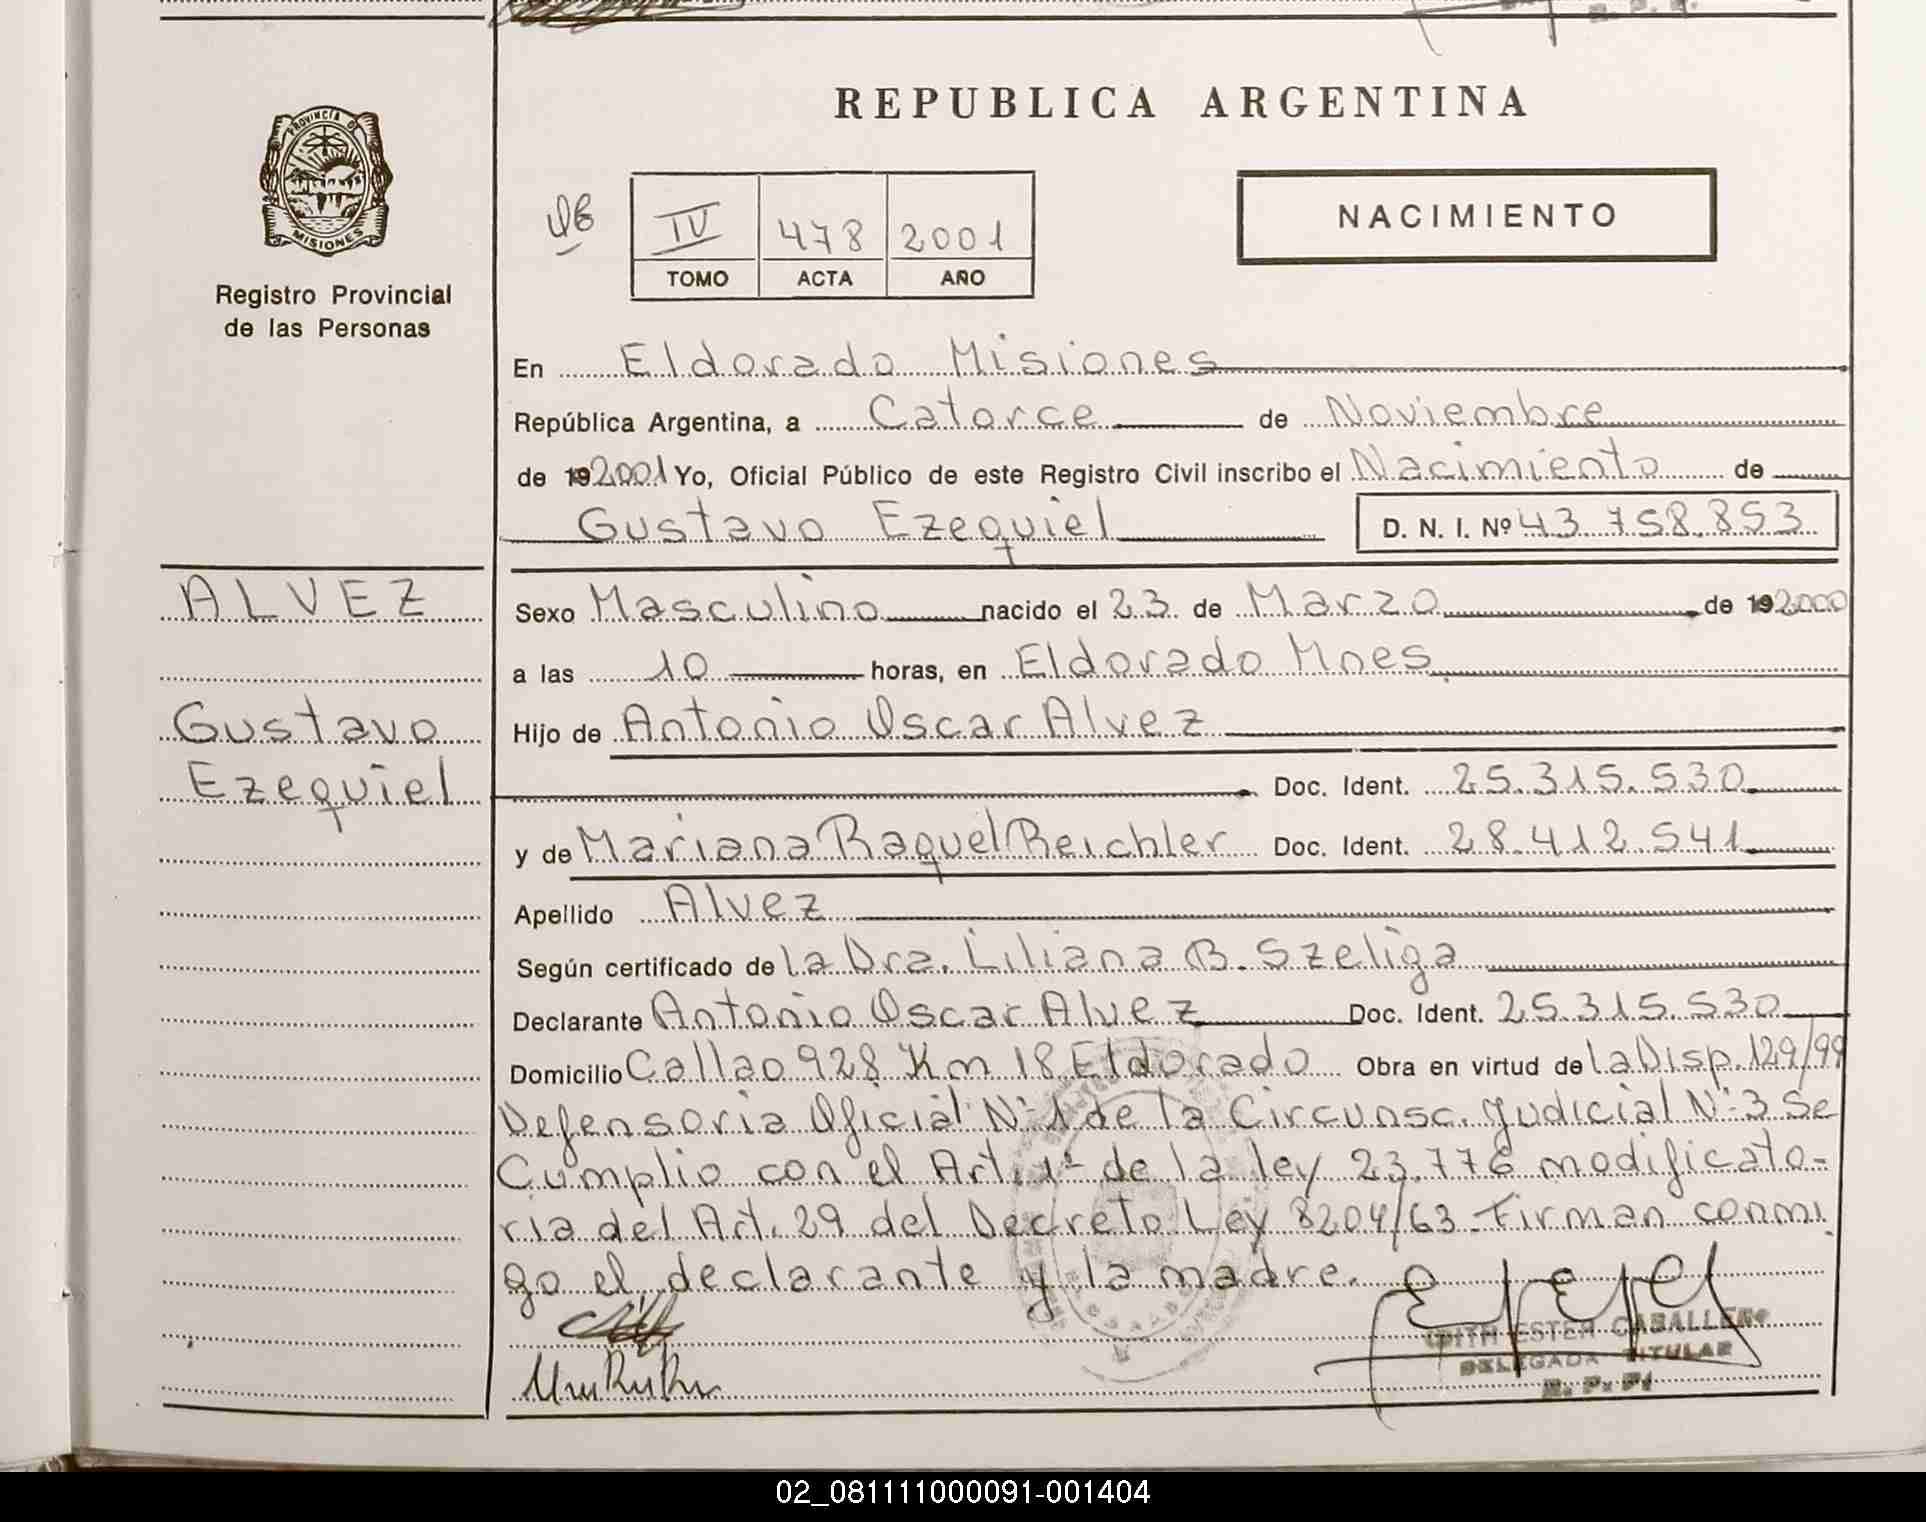 PROVINCIA D
MISIONES
Registro Provincial
de las Personas
REPUBLICA ARGENTINA
IV 478 2001
TOMO ACTA AÑO
NACIMIENTO
En Eldorado Misiones
República Argentina, a Catorce de Noviembre
de 192001 Yo, Oficial Público de este Registro Civil inscribo el Nacimiento de
Gustavo Ezequiel D. N. I. Nº 43.758.853
ALVEZ
Gustavo
Ezequiel
Sexo Masculino nacido el 23 de Marzo de 192000
a las 10 horas, en Eldorado Mnes
Hijo de Antonio Oscar Alvez
Doc. Ident. 25.315.530
y de Mariana Raquel Reichler Doc. Ident. 28.412.541
Apellido Alvez
Según certificado de la Dra. Liliana B. Szeliga
Declarante Antonio Oscar Alvez Doc. Ident. 25.315.530
Domicilio Callao 928 Km 18 Eldorado Obra en virtud de la Disp. 129/99
Defensoria Oficial Nº 1 de la Circunsc. Judicial Nº 3 Se
Cumplio con el Art. 1º de la ley 23.776 modificato-
ria del Art. 29 del Decreto Ley 8204/63. Firman conmi
go el declarante y la madre.
EDITH ESTER CABALLERO
DELEGADA TITULAR
R. P. P.
02_081111000091-001404